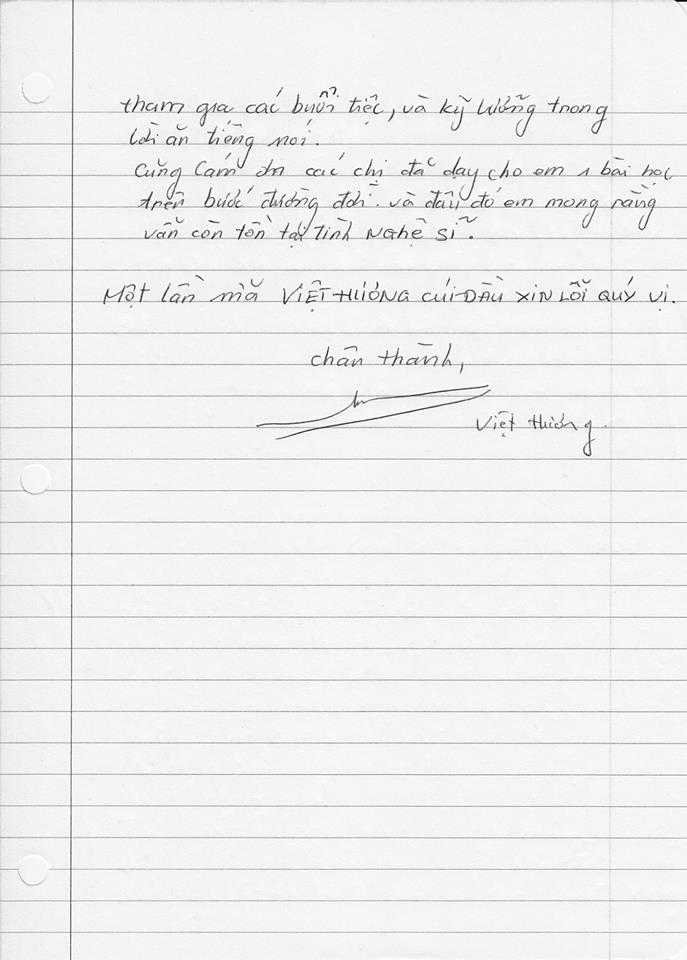 tham gia các buổi tiệc, và kỹ lưỡng trong
lời ăn tiếng nói.
Cũng Cám ơn các chị đã dạy cho em 1 bài học
trên bước đường đời. và đâu đó em mong rằng
vẫn còn tồn tại Tình Nghệ Sĩ.
Một lần nữa VIỆT HƯƠNG CÚI ĐẦU XIN LỖI QUÝ VỊ.
chân thành,
Việt Hương